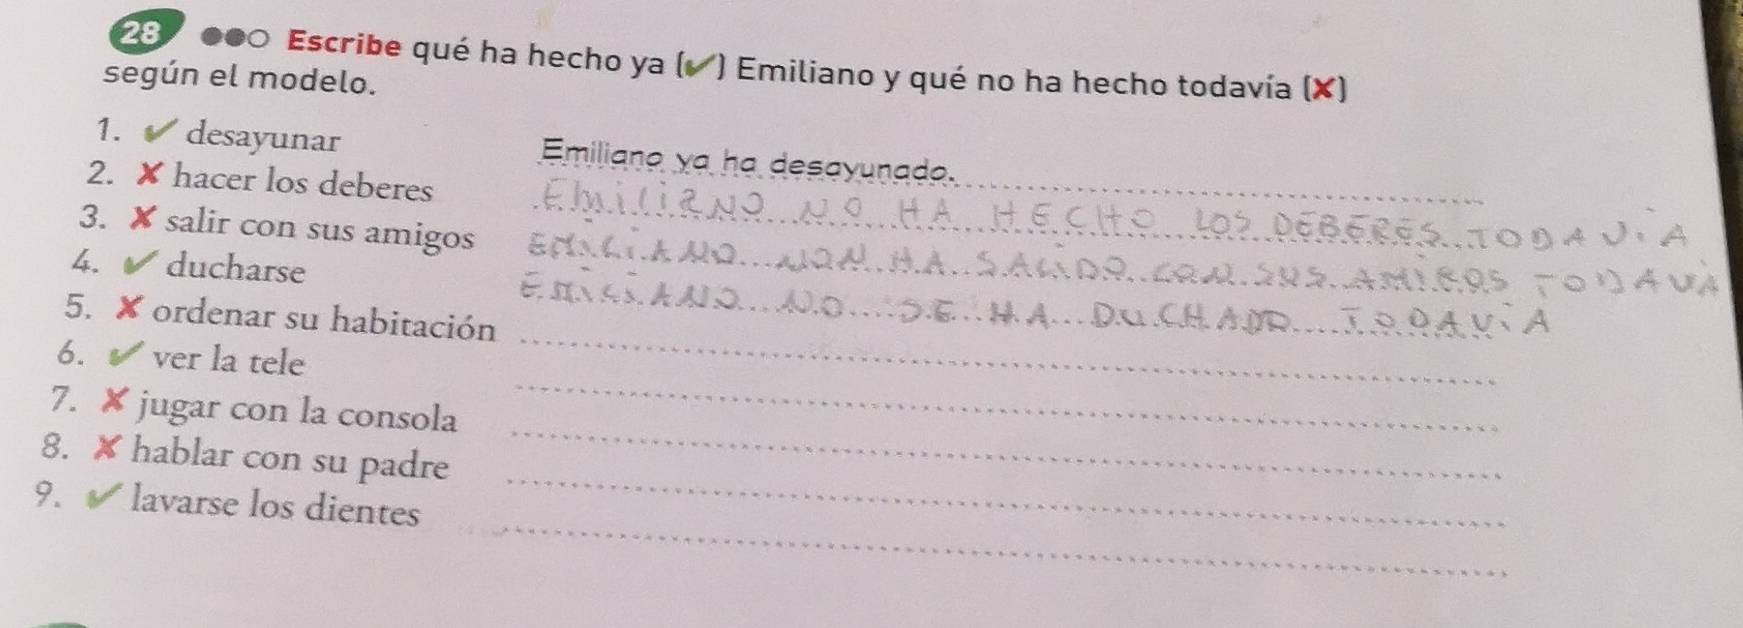 28 Escribe qué ha hecho ya (✔) Emiliano y qué no ha hecho todavía (✘)
según el modelo.
1. ✔ desayunar Emiliano ya ha desayunado.
2. ✘ hacer los deberes EMILIANO NO HA HECHO LOS DEBERES TODAVÌA
3. ✘ salir con sus amigos EMILIANO NON HA SALIDO CON SUS AMIGOS TODAVÌA
4. ✔ ducharse EMILIANO NO SE HA DUCHADO TODAVÌA
5. ✘ ordenar su habitación
6. ✔ ver la tele
7. ✘ jugar con la consola
8. ✘ hablar con su padre
9. ✔ lavarse los dientes